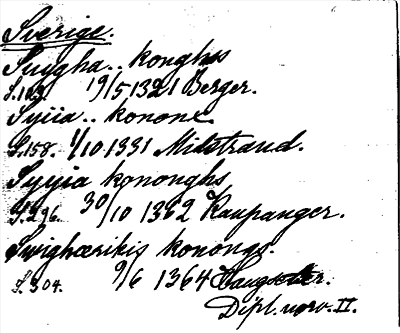 Sverige.
Suygha.. konghs
S.123. 19/5 1321 Berger.
Syiia.. kononc
S.158. 1/10 1331 Milstraud.
Syyia kononghs
S.296. 30/10 1362 Raupanger.
Swighærikis konongs.
S.304. 9/6 1364
Dipl. norv. II.